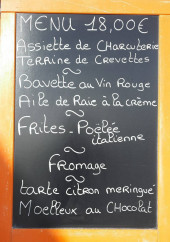 MENU 18,00€
Assiette de Charcuterie
Terrine de Crevettes
Bavette au Vin Rouge
Aile de Raie à la crème
Frites - Poêlée
italienne
Fromage
tarte citron meringué
Moelleux au CHocolat